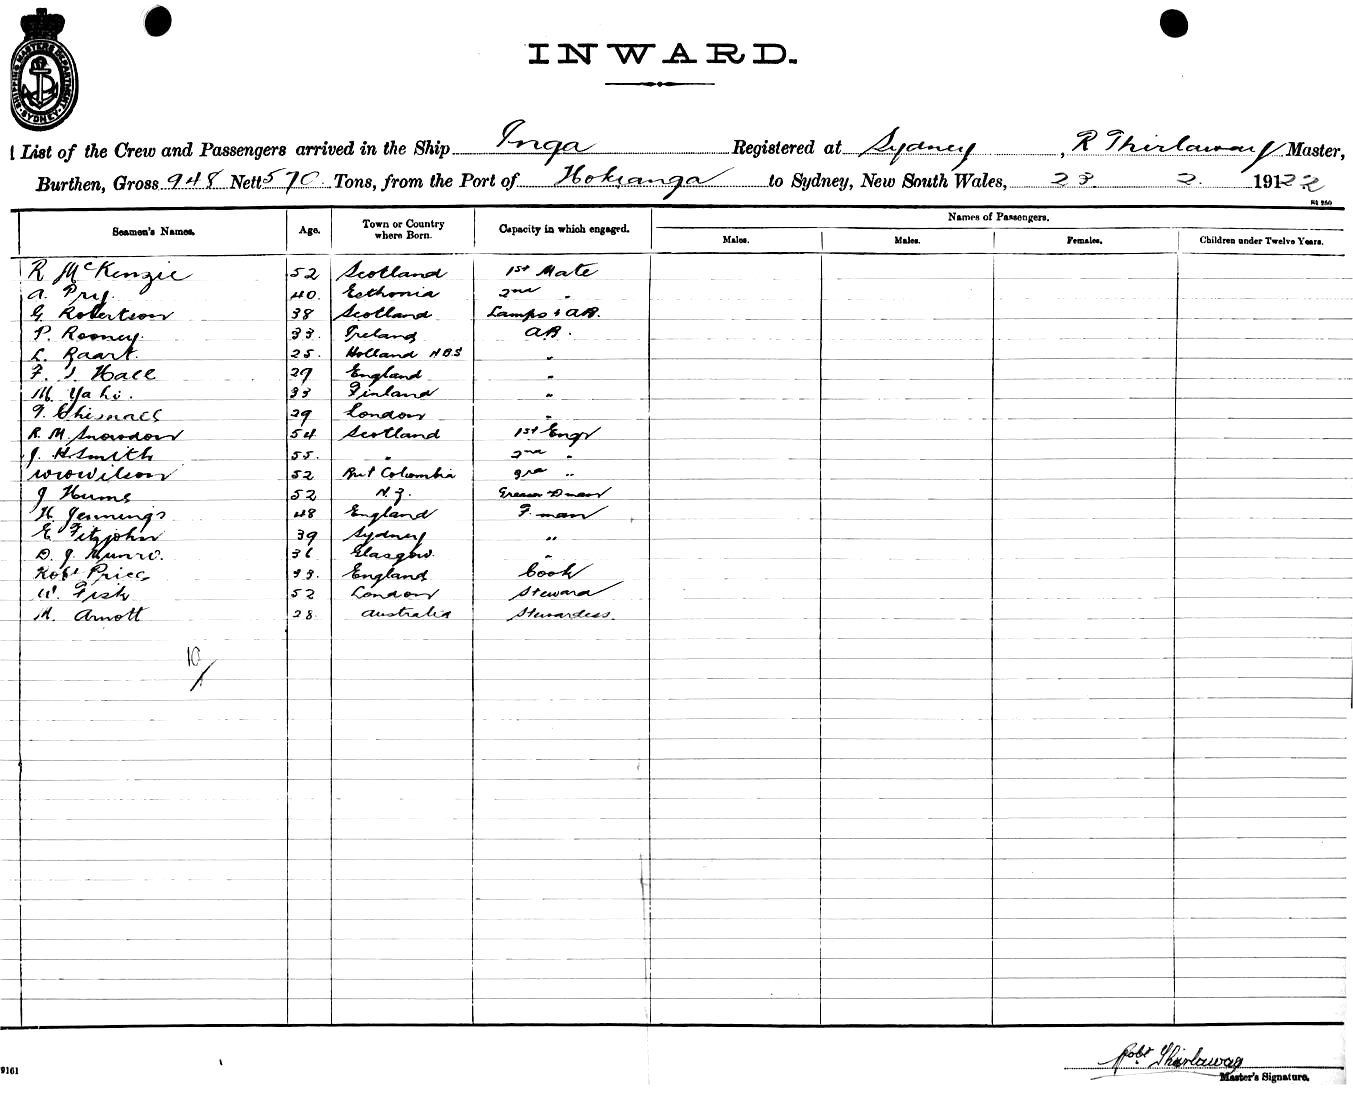 SHIPPING MASTERS DEPARTMENT SYDNEY
INWARD.
List of the Crew and Passengers arrived in the Ship Inga Registered at Sydney, R Thirlaway Master,
Burthen, Gross 948 Nett 570 Tons, from the Port of Hokianga to Sydney, New South Wales, 23 2. 1922
Seamen's Names. Age. Town or Country where Born. Capacity in which engaged. Names of Passengers.
Males. Males. Females. Children under Twelve Years.
R McKenzie 52 Scotland 1st Mate
A. Pry. 40. Esthonia 2nd "
G Robertson 38 Scotland Lamps & AB.
P. Rooney. 33. Ireland AB.
L. Raart. 25. Holland "
F. J Hall 29 England "
M. Yahi. 33 Finland "
Chisnall 29 London "
R. M. Snowdon 54 Scotland 1st Engr
J. H Smith 55. " 2nd "
W Wilson 52 Brit Columbia 3rd "
J Hume 52 N.Z. Greaser
H Jennings 48 England F. man
E Fitzjohn 39 Sydney "
D. J. Munro. 36 Glasgow. "
Robt Price 33. England Cook
W. Fish 52 London Steward
M. Arnott 28 Australia Stewardess.
10/
Robt Thirlaway
Master's Signature.
9161